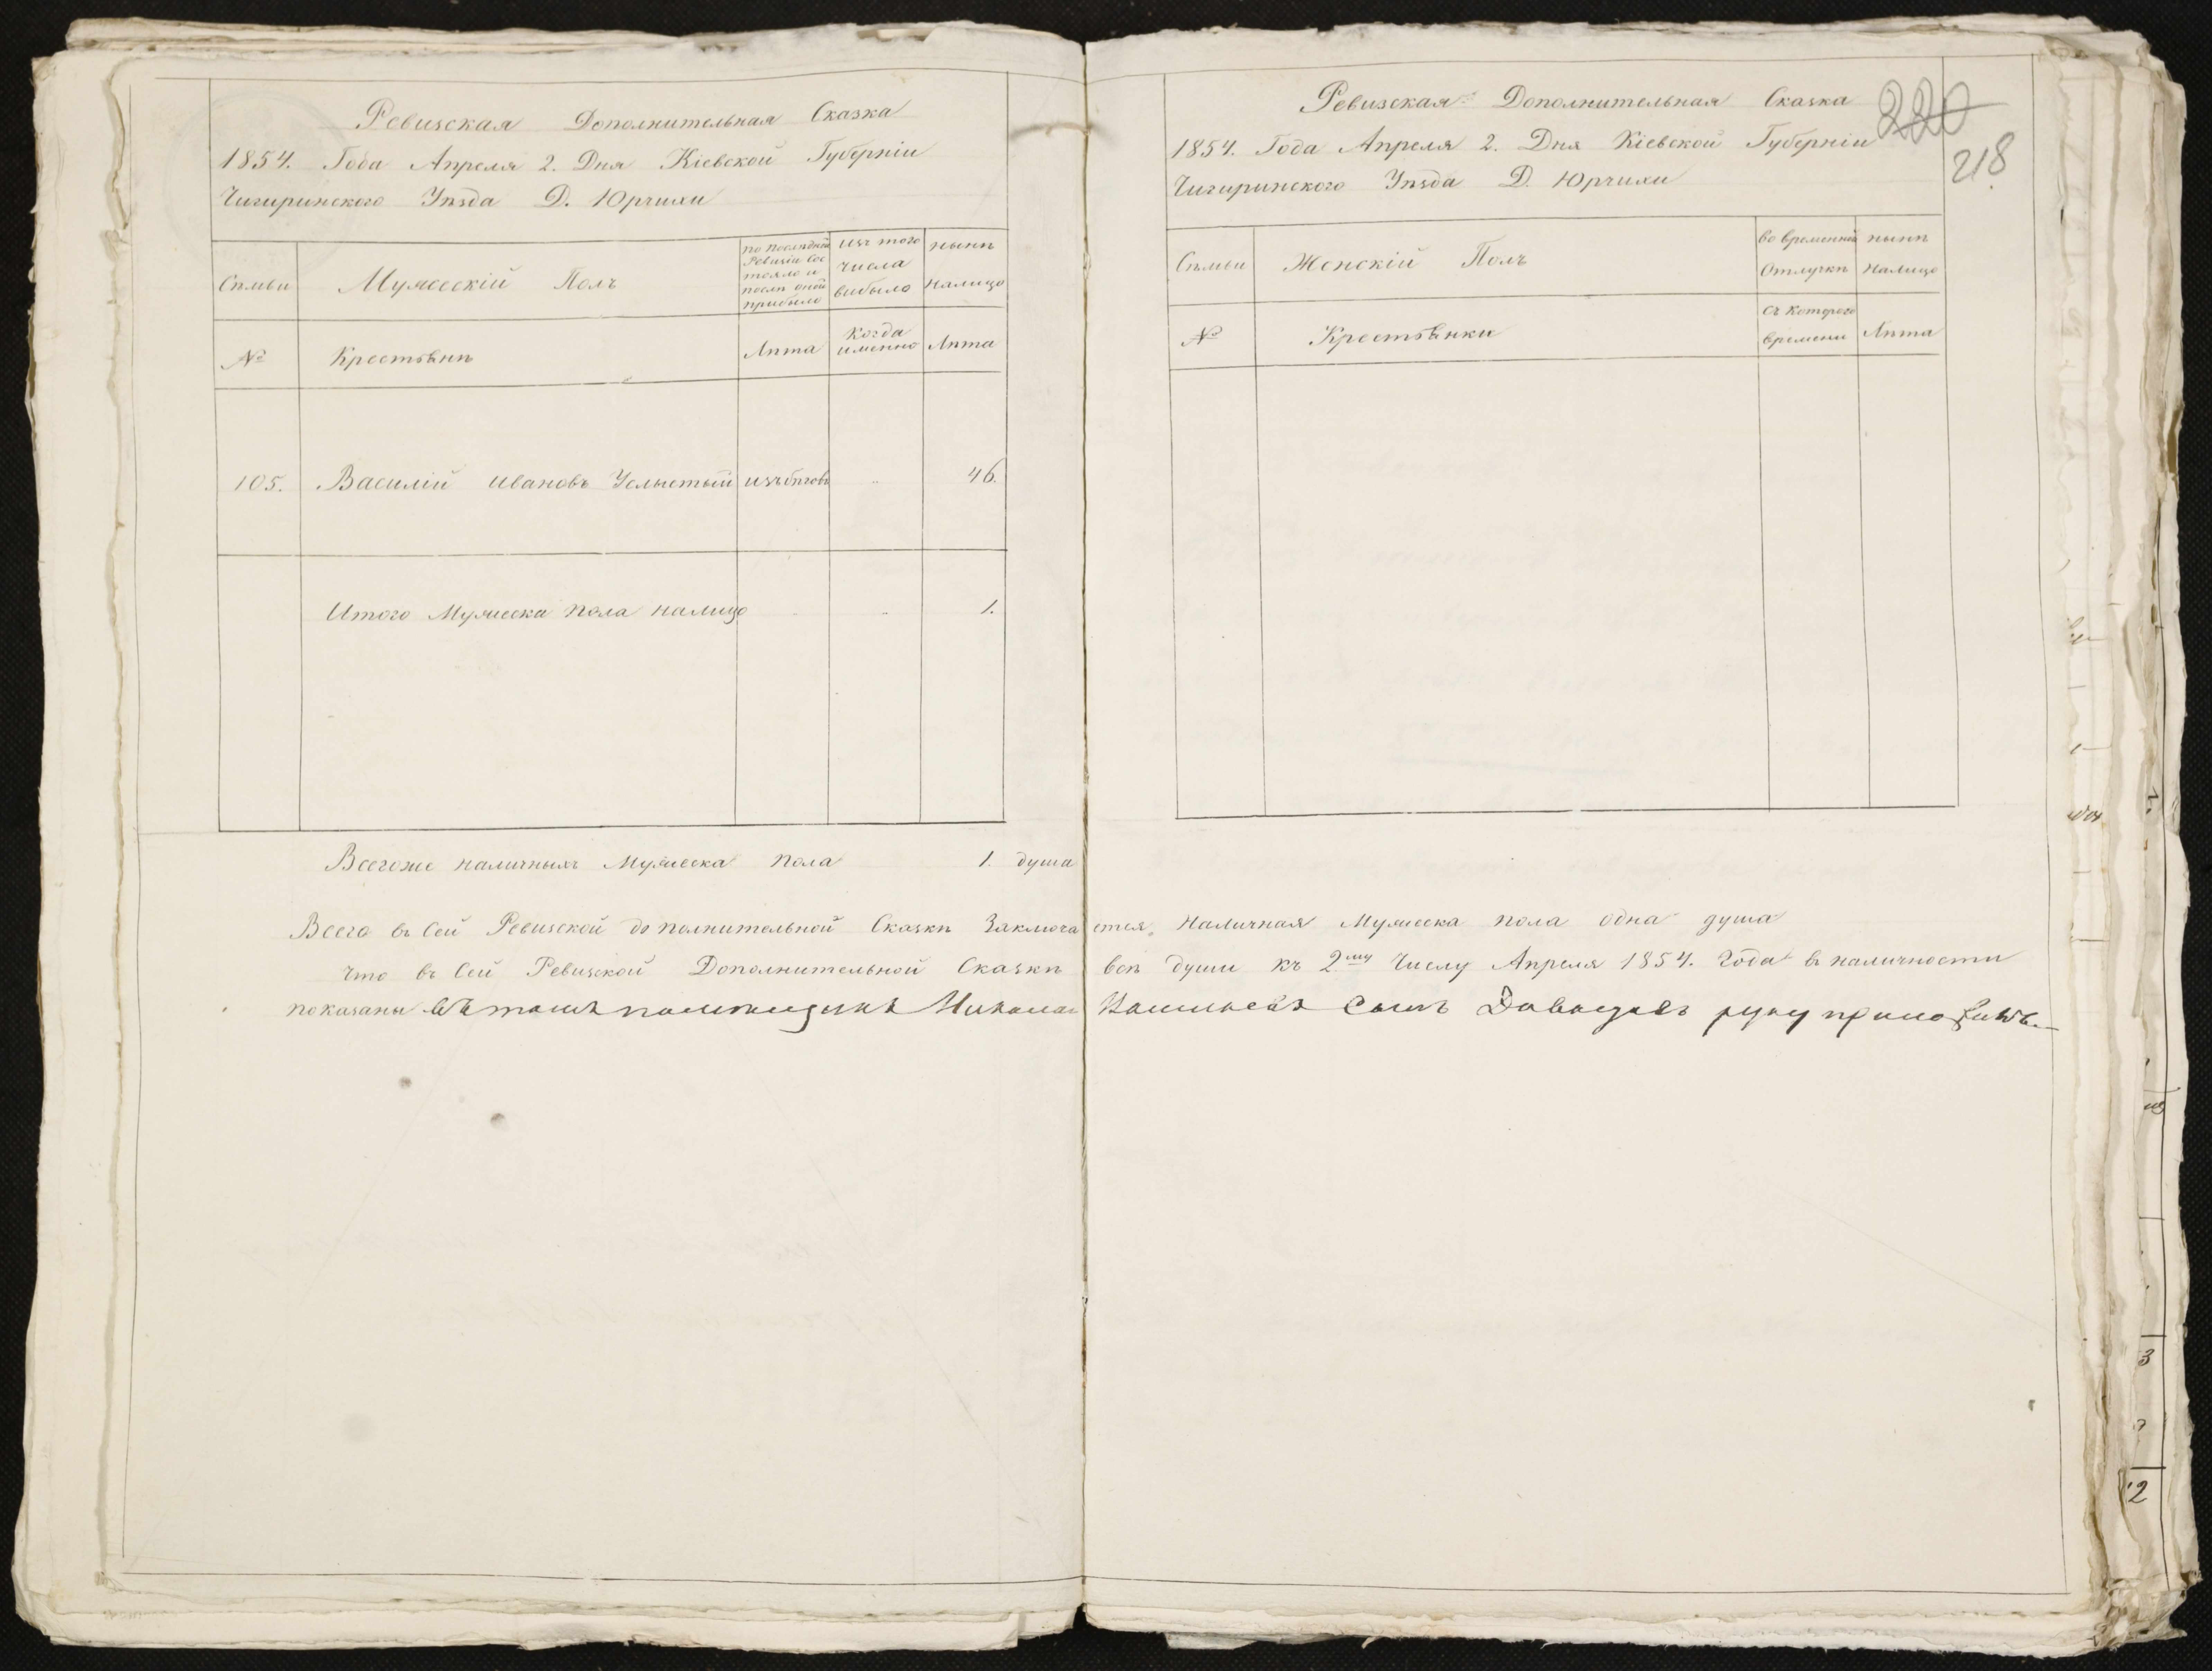 Ревизская Дополнительная Сказка
1854. Года Апреля 2. Дня Кіевской Губерніи
Чигиринского Уѣзда Д. Юрчихи
Сѣмьи
Мужескій Полъ
по последней Ревизіи состояло и послѣ оной прибыло
изъ того числа выбыло
нынѣ налицо
№
Крестьянѣ
Лѣта
Когда именно
Лѣта
105. Василій Ивановъ изъ бѣговъ .. 46.
Итого Мужеска пола налицо .. 1.
Всегоже наличныхъ Мужеска пола 1. душа
Ревизская Дополнительная Сказка
1854. Года Апреля 2. Дня Кіевской Губерніи
Чигиринского Уѣзда Д. Юрчихи
220
218
Сѣмьи
Женскій Полъ
во временной Отлучкѣ
нынѣ налицо
№
Крестьянки
съ которого времени
Лѣта
Всего въ сей Ревизской дополнительной Сказкѣ Заключается Наличная Мужеска пола одна душа
Что въ сей Ревизской Дополнительной Сказкѣ всѣ души къ 2му Числу Апреля 1854. Года в наличности
показаны въ томъ помещикъ Николай Васильевъ сынъ Давыдовъ руку приложилъ.